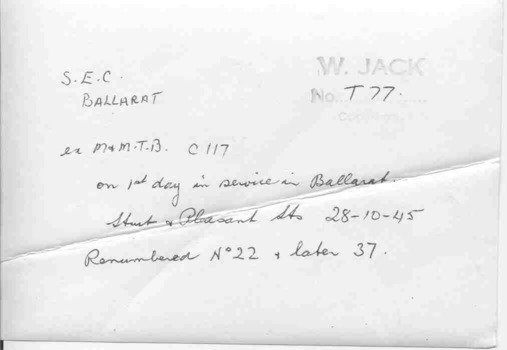 W. JACK
No. T 77.
S.E.C.
BALLARAT
ex M & M.T.B. C 117
on 1st day in service in Ballarat.
Sturt & Pleasant Sts 28-10-45
Renumbered No 22 & later 37.